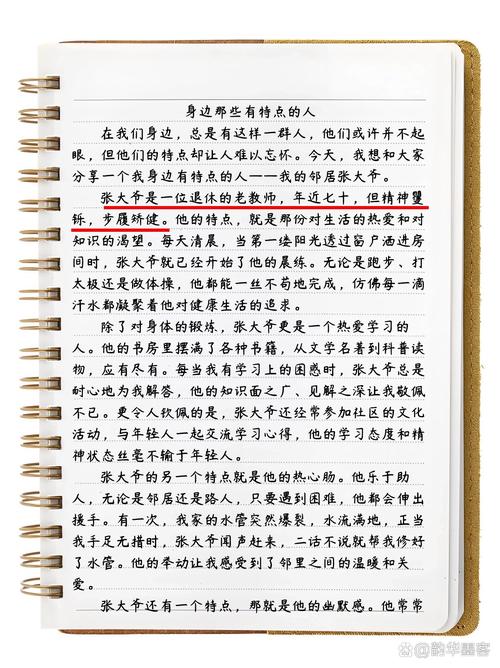 身边那些有特点的人
在我们身边，总是有这样一群人，他们或许并不起
眼，但他们的特点却让人难以忘怀。今天，我想和大家
分享一个我身边有特点的人——我的邻居张大爷。
张大爷是一位退休的老教师，年近七十，但精神矍
铄，步履矫健。他的特点，就是那份对生活的热爱和对
知识的渴望。每天清晨，当第一缕阳光透过窗户洒进房
间时，张大爷就已经开始了他的晨练。无论是跑步、打
太极还是做体操，他都能一丝不苟地完成，仿佛每一滴
汗水都凝聚着他对健康生活的追求。
除了对身体的锻炼，张大爷更是一个热爱学习的
人。他的书房里摆满了各种书籍，从文学名著到科普读
物，应有尽有。每当我有学习上的困惑时，张大爷总是
耐心地为我解答，他的知识面之广、见解之深让我敬佩
不已。更令人钦佩的是，张大爷还经常参加社区的文化
活动，与年轻人一起交流学习心得，他的学习态度和精
神状态丝毫不输于年轻人。
张大爷的另一个特点就是他的热心肠。他乐于助
人，无论是邻居还是路人，只要遇到困难，他都会伸出
援手。有一次，我家的水管突然爆裂，水流满地，正当
我手足无措时，张大爷闻声赶来，二话不说就帮我修好
了水管。他的举动让我感受到了邻里之间的温暖和关
爱。
张大爷还有一个特点，那就是他的幽默感。他常常
韵华墨客